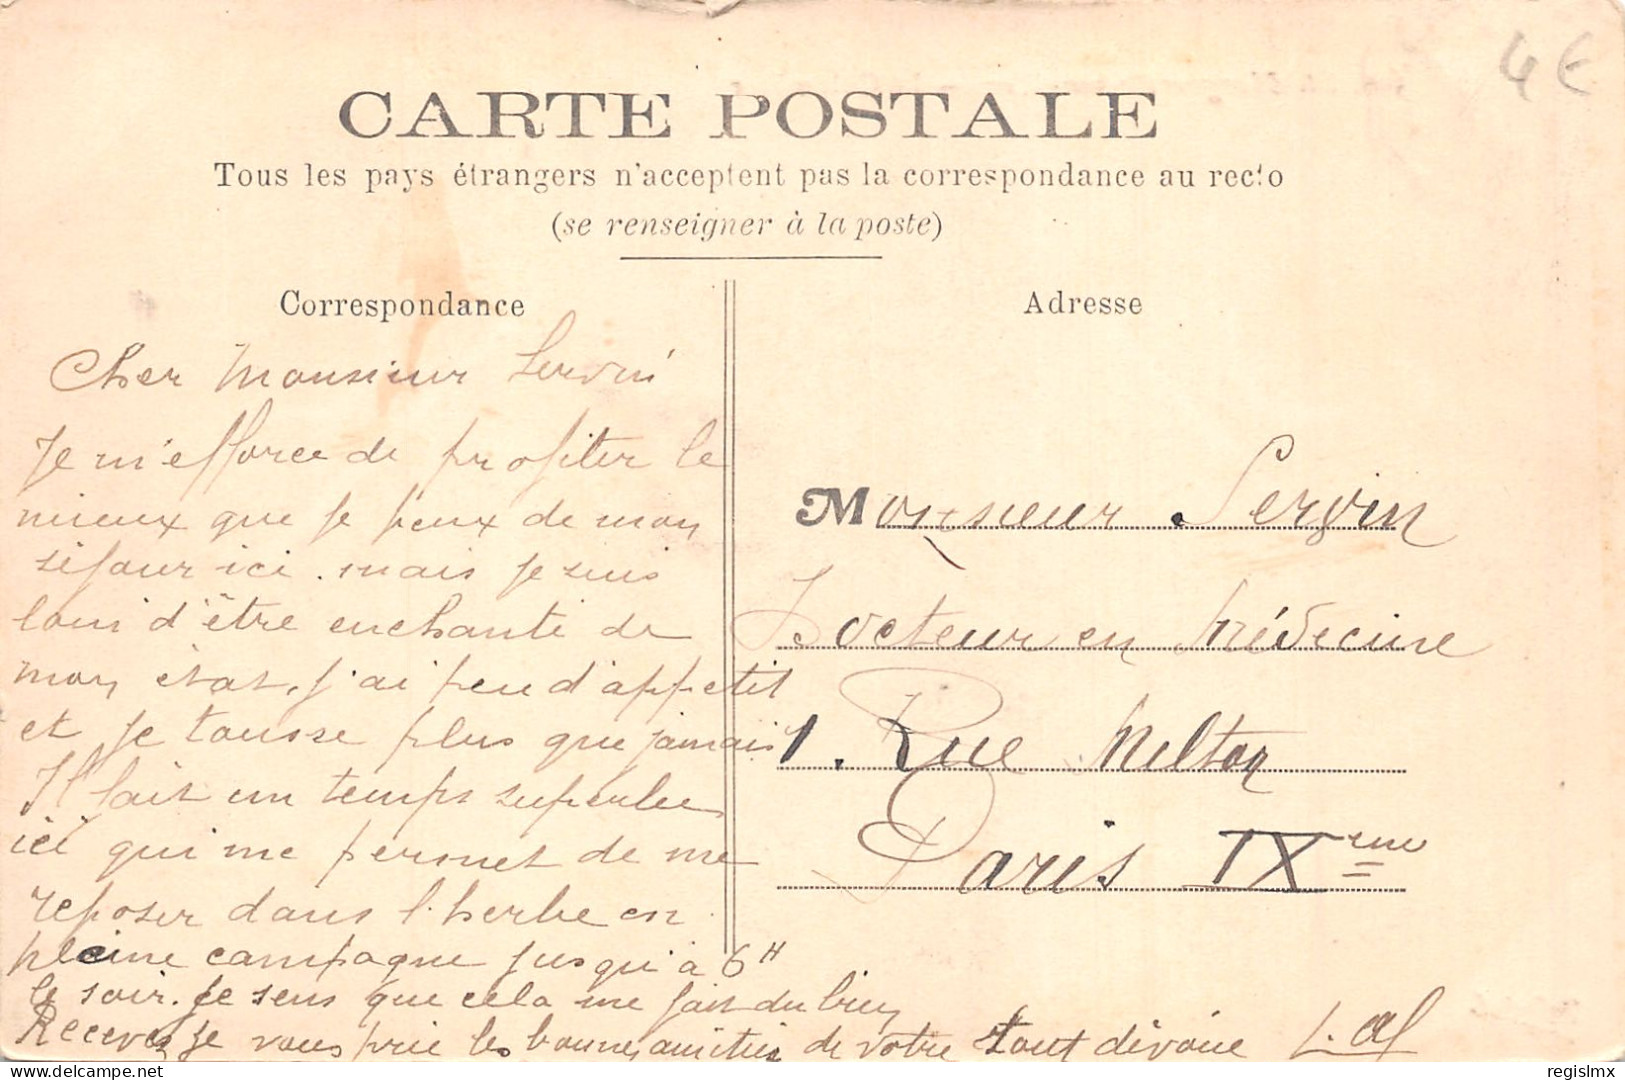 4 €
CARTE POSTALE
Tous les pays étrangers n'acceptent pas la correspondance au recto
(se renseigner à la poste)
Correspondance
Cher Monsieur Servin
Je m'efforce de profiter le
mieux que je peux de mon
séjour ici. mais je suis
loin d'être enchanté de
mon état, j'ai peu d'appetit
et je tousse plus que jamais
Il fait un temps superbe
ici qui me permet de me
reposer dans l'herbe en
pleine campagne jusqu'à 6H
le soir. Je sens que cela me fait du bien
Recevez je vous prie les bonnes amitiés de votre tout dévoué
Adresse
Monsieur Servin
Docteur en Médecine
1. Rue Milton
Paris IXme
delcampe.net
regislmx